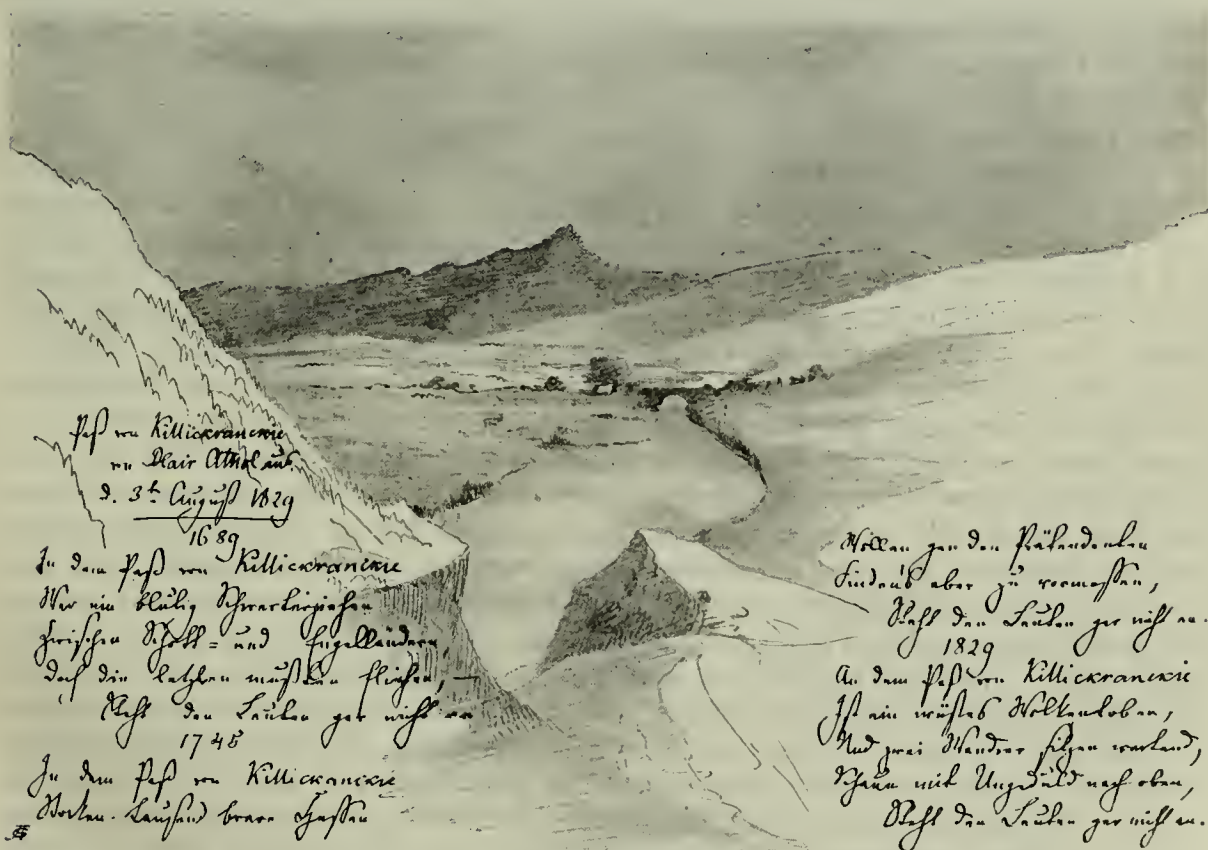 Paß von Killickranckie
von Blair Athol aus
d. 3t August 1829
1689
In dem Paß von Killickranckie
War ein blutig Schwerterziehen
Zwischen Schott- und Engelländern,
Doch die letzten mußten fliehen,
Steht den Leuten gar nicht an
1745
In dem Paß von Killickranckie
Stocken tausend brave Hessen
Wollen gen den Prätendenten
Finden's aber zu vermessen,
Steht den Leuten gar nicht an.
1829
An dem Paß von Killickranckie
Ist ein wüstes Wolkentoben,
Und zwei Wandrer sitzen wartend,
Schaun mit Ungeduld nach oben,
Steht den Leuten gar nicht an.